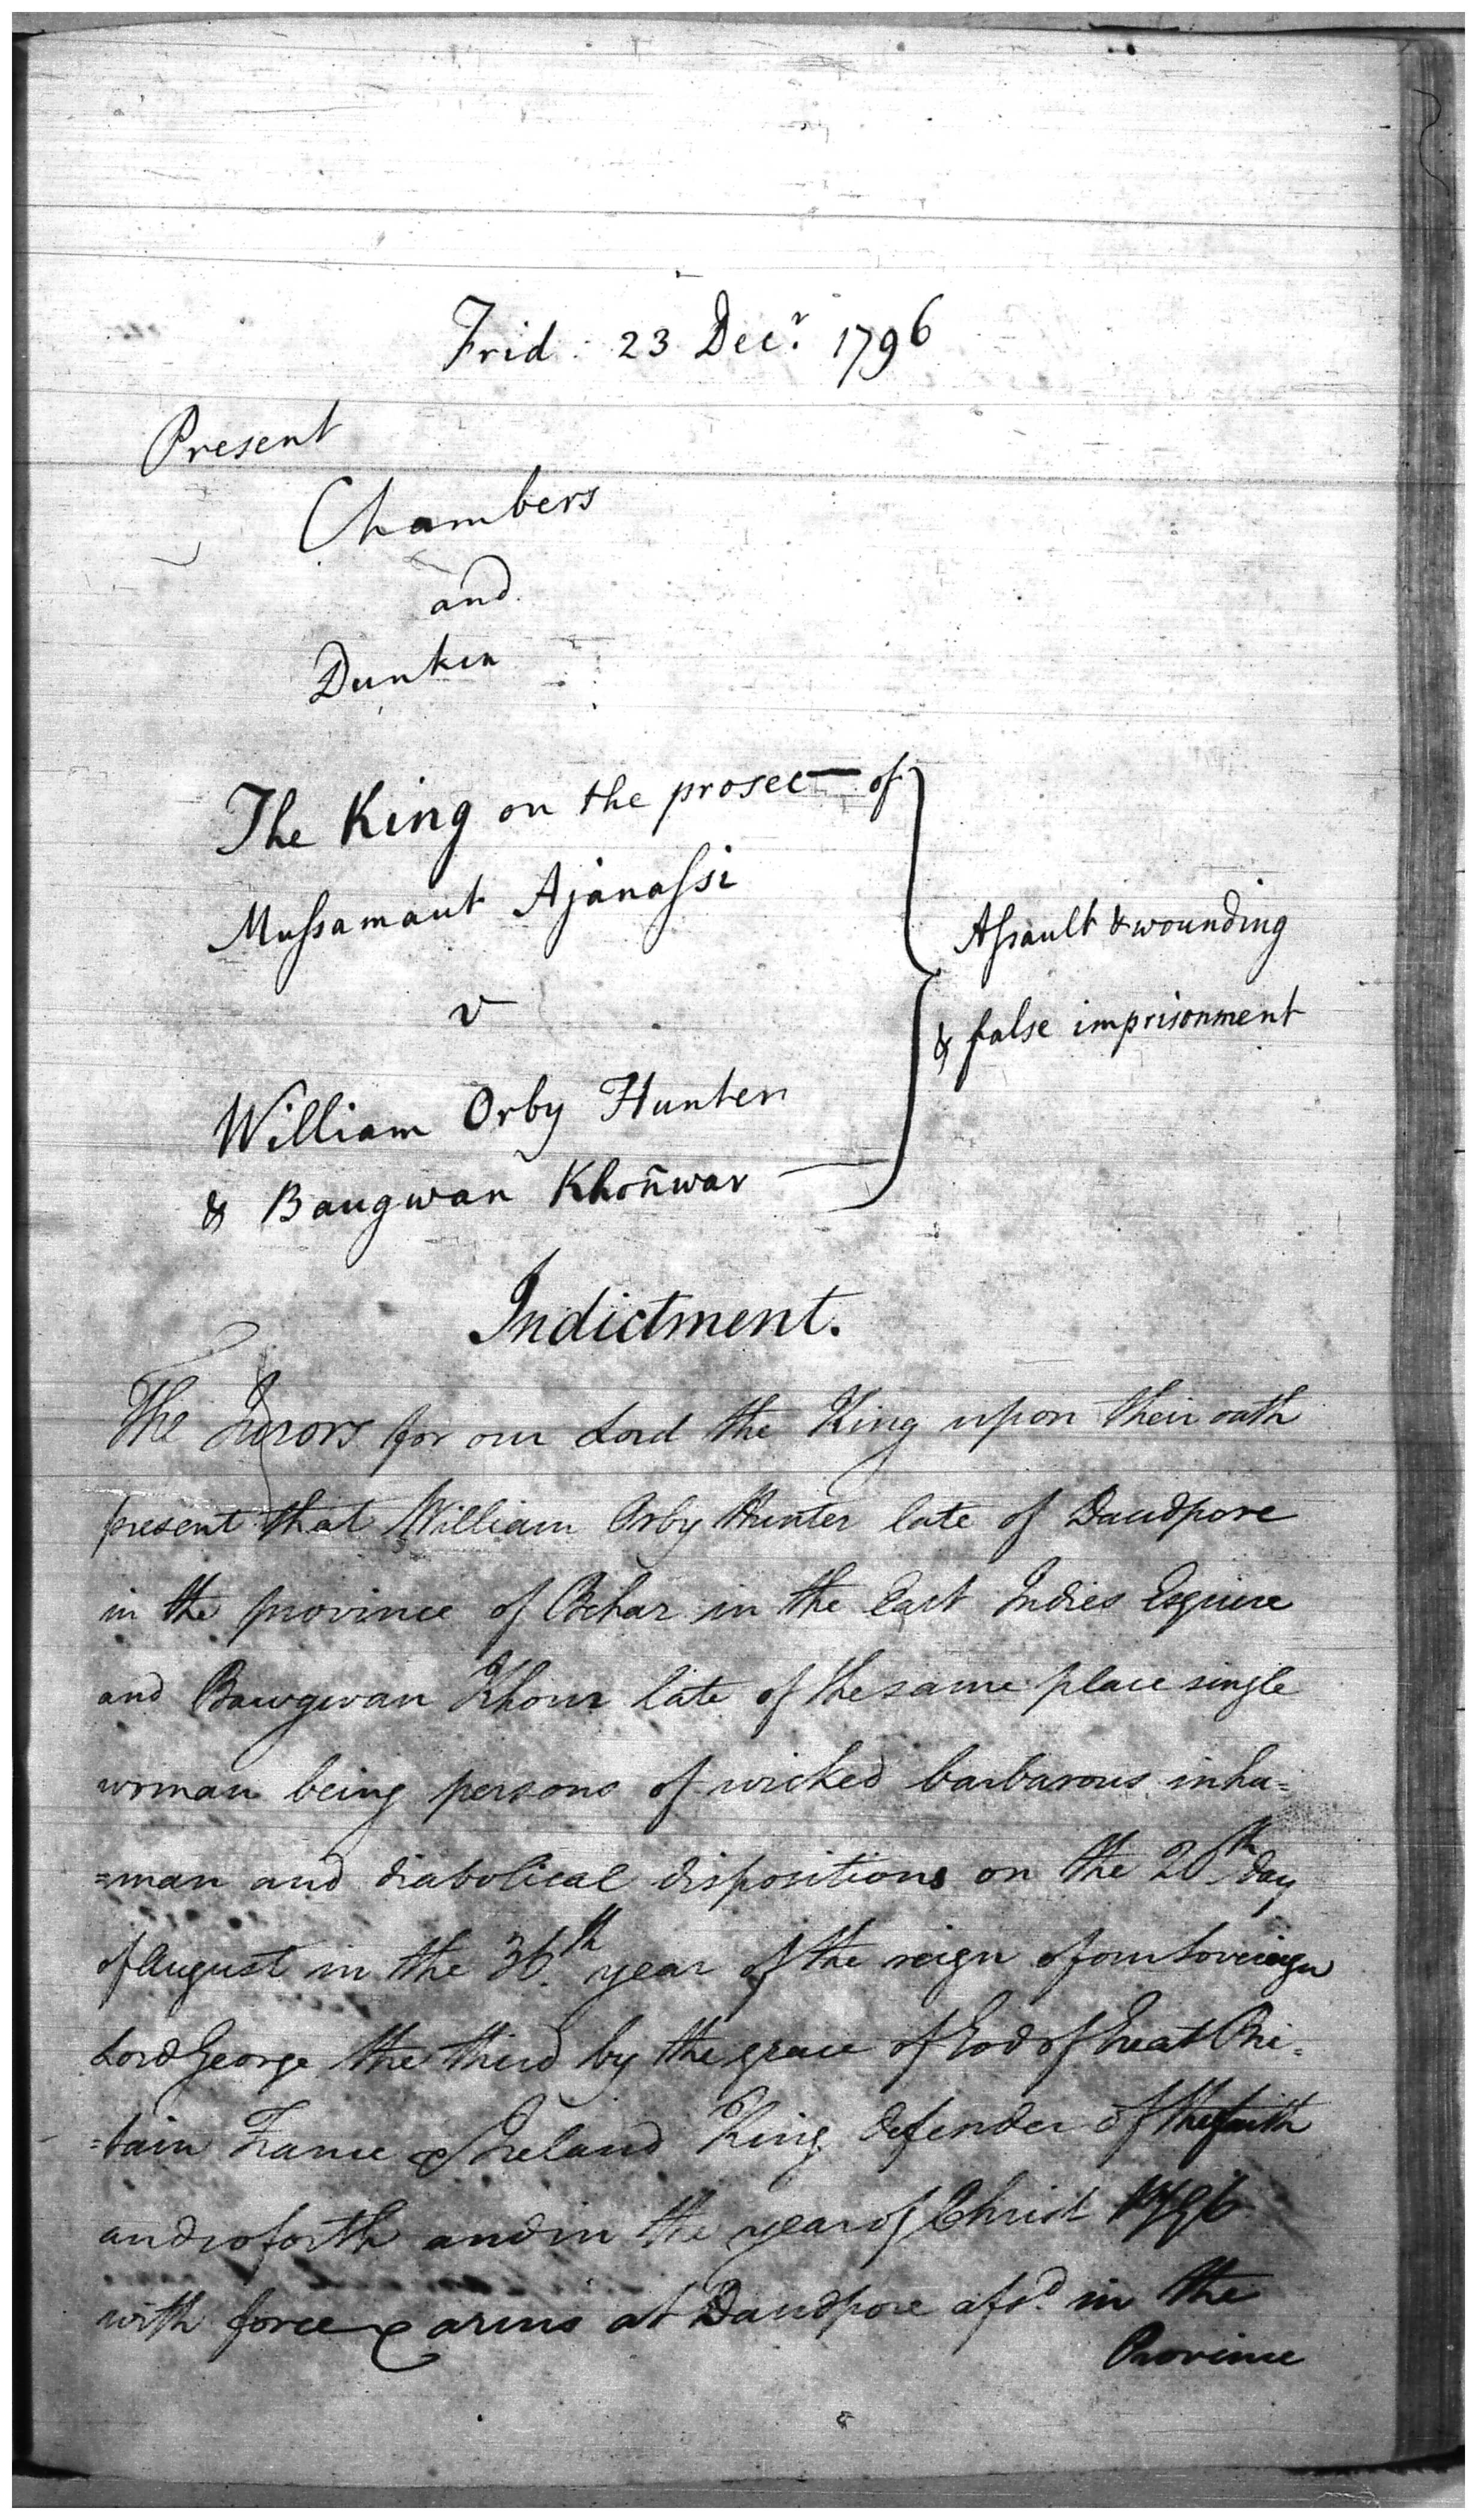 Frid: 23 Decr. 1796
Present
Chambers
and
Dunkin
The King on the prosec— of
Mussamaut Ajanassi
v
William Orby Hunter
& Baugwan Khoñwar
Assault & wounding
& false imprisonment
Indictment.
The Jurors for our Lord the King upon their oath
present that William Orby Hunter late of Daudpore
in the province of Behar in the East Indies Esquire
and Bawgwan Khour late of the same place single
woman being persons of wicked barbarous inhu=
=man and diabolical dispositions on the 20th day
of August in the 36.th year of the reign of our Sovereign
Lord George the third by the grace of God of Great Bri=
=tain France & Ireland King defender of the faith
and so forth and in the year of Christ 1796
with force & arms at Daudpore afsd. in the
Province